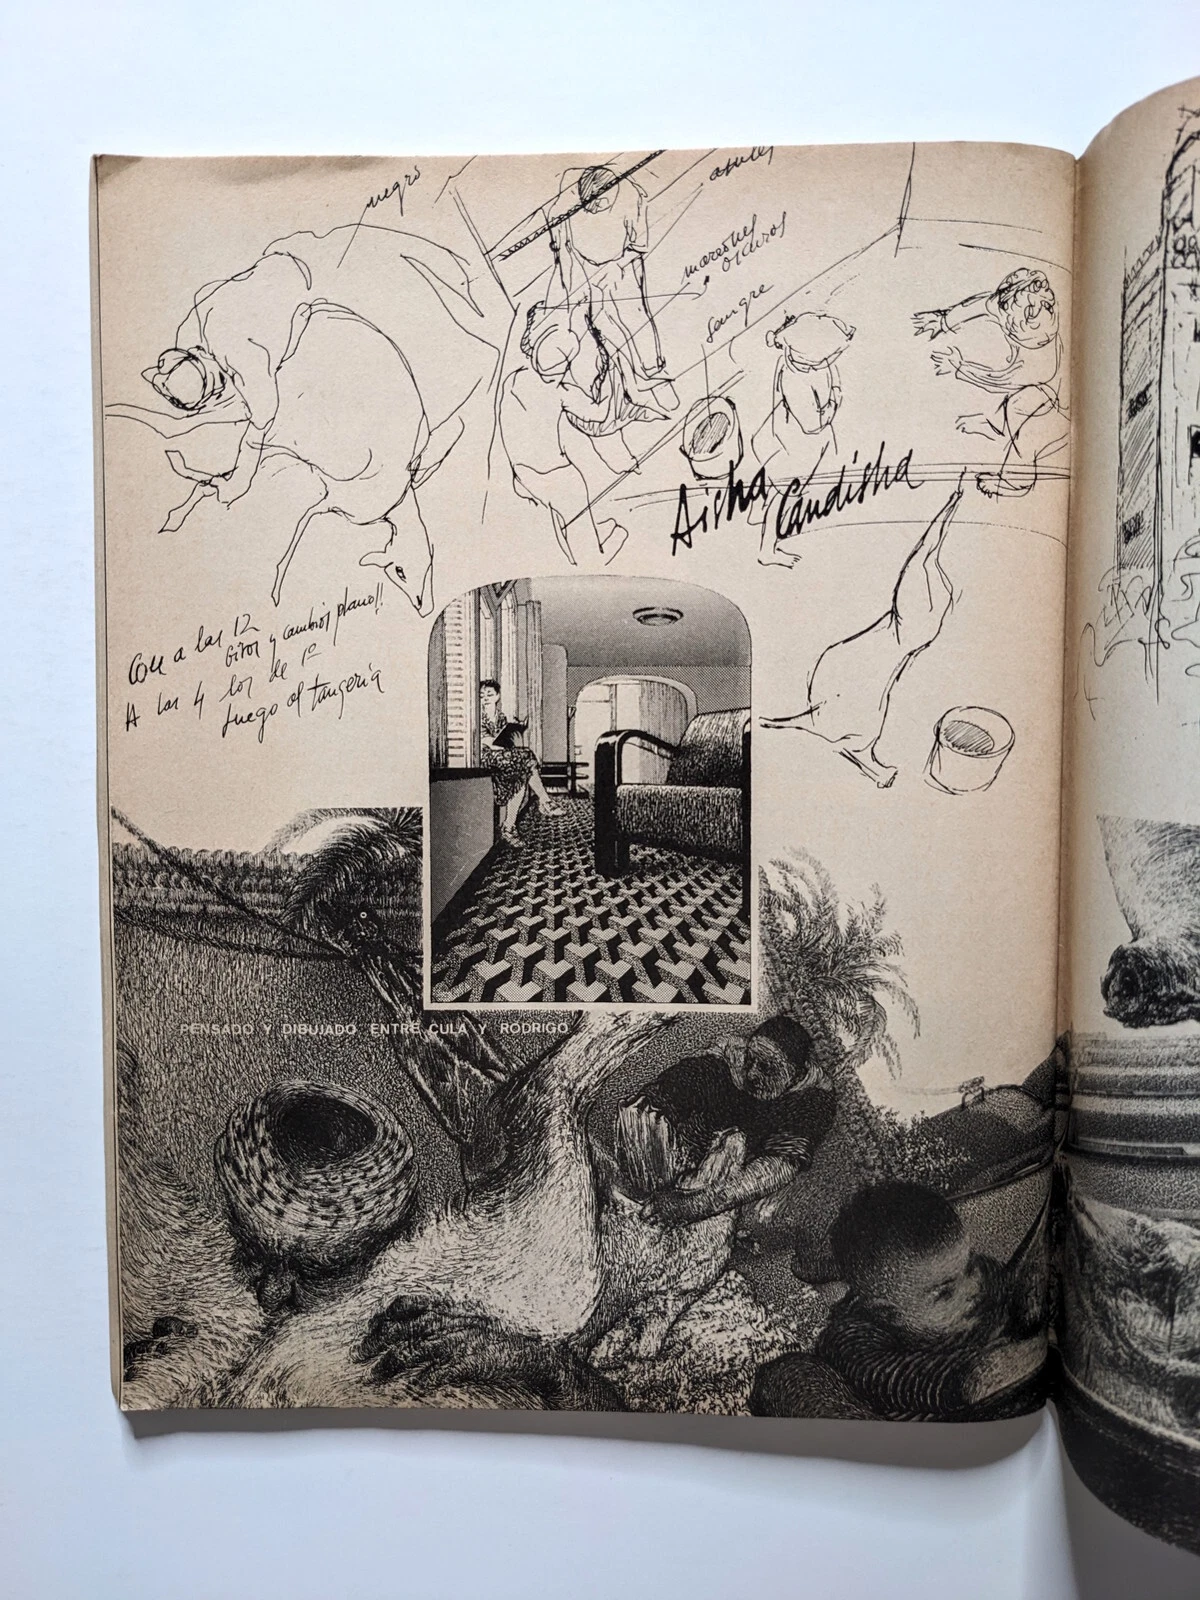 negro
azules
marrones
oscuros
sangre
Aisha Candisha
Con a las 12
Giros y cambios plano!!
A las 4 los de 1º
Luego al tangeria
PENSADO Y DIBUJADO ENTRE CULA Y RODRIGO